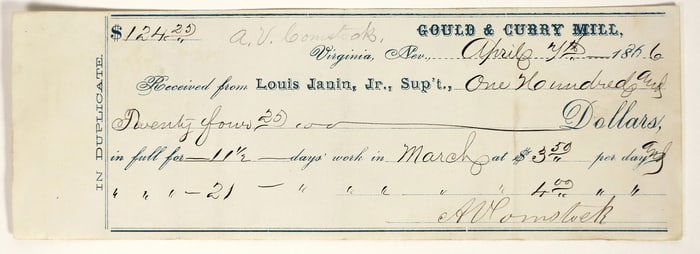 $124 25/" A. V. Comstock. GOULD & CURRY MILL,
Virginia, Nev., April 7th 1866
Received from Louis Janin, Jr., Sup't., One Hundred and
Twenty four 25/" Dollars,
in full for 11 ½ days' work in March at $3 50/" per day and
" " " 21 " " " " " 4 00/" " "
A V Comstock
IN DUPLICATE.